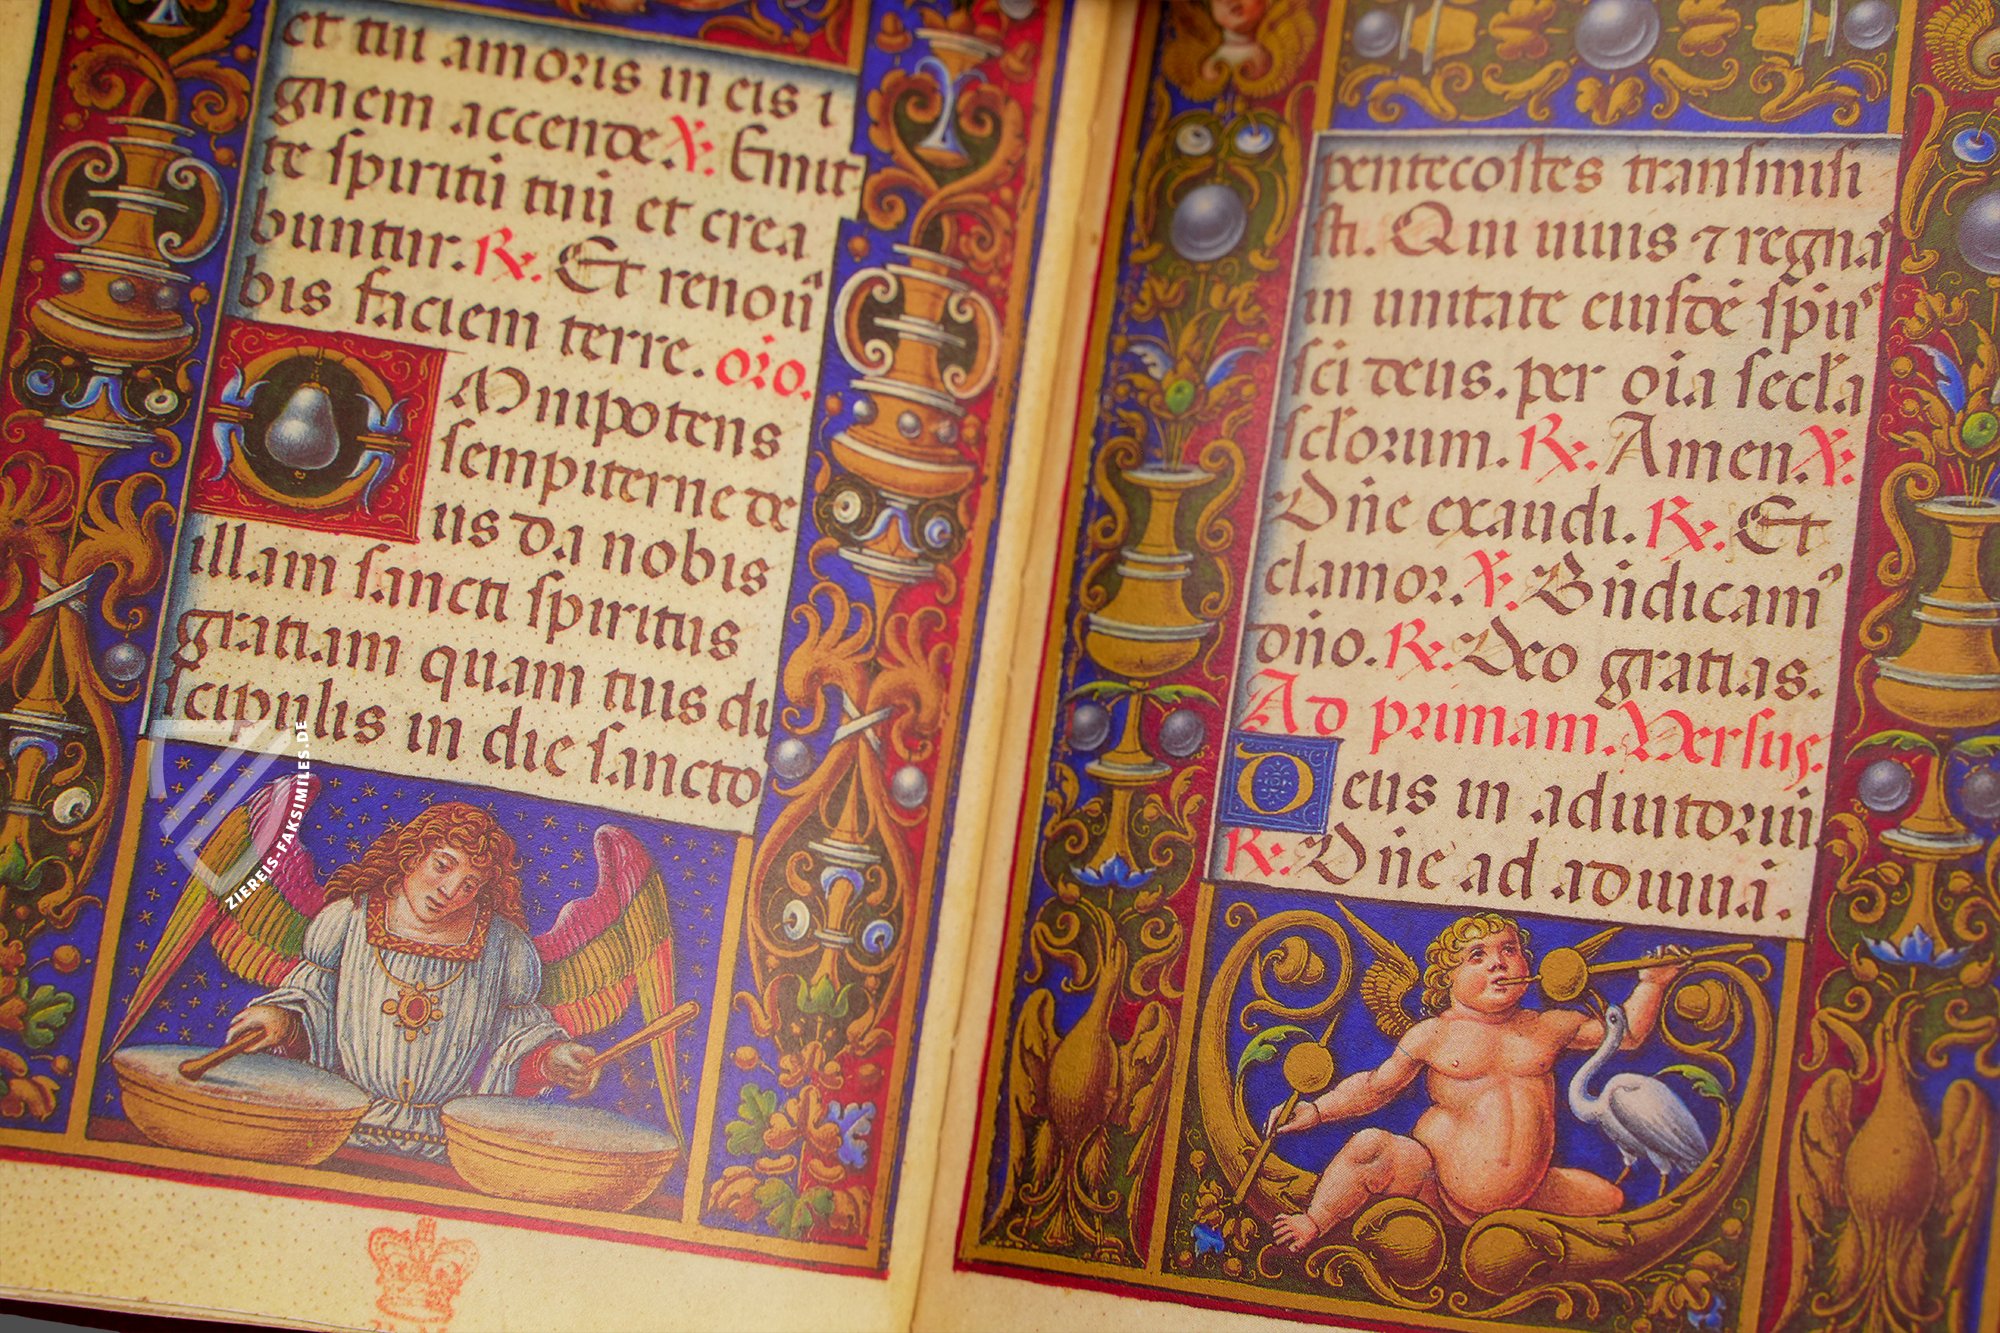 et tui amoris in eis i
gnem accende. ℣. Emit
te spiritū tuū et crea
buntur. ℟. Et renoūa
bis faciem terre. oro.
Omnipotens
sempiterne de
us da nobis
illam sancti spiritus
gratiam quam tuis di
scipulis in die sancto
pentecostes transmisi
sti. Qui uiuis ⁊ regnas
in unitate eiusdē spirꝰ
sci deus. per oia secl'a
scl'orum. ℟. Amen. ℣.
Dñe exaudi. ℟. Et
clamor. ℣. Bñdicamꝰ
dño. ℟. Deo gratias.
Ad primam. Versus.
Deus in adiutoriū
℟. Dñe ad adiuuā.
ZIEREIS-FAKSIMILES.DE